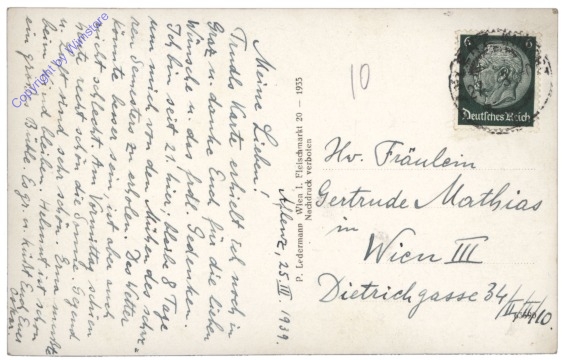 Meine Lieben!
Trudls Karte erhielt ich noch in
Graz u. danke Euch für die lieben
Wünsche u. das frdl. Gedenken.
Ich bin seit 21. hier, bleibe 8 Tage
um mich von den Mühen des schwe-
ren Semesters zu erholen. Das Wetter
könnte besser sein, ist aber auch
nicht schlecht. Am Vormittag schien
heute recht schön die Sonne. Gegend
u. sind sehr schön. Erna musste
beim bleiben, Helmut ist schon
ein Bube. Es gr. u. küsst Euch Euer
Aflenz, 25.III.1939.
P. Ledermann Wien I. Fleischmarkt 20 — 1935
Nachdruck verboten
10
6 6
Deutsches Reich
Hv. Fräulein
Gertrude Mathias
in
Wien III
Dietrichgasse 34/I/III/10.
Copyright by Wiimstore